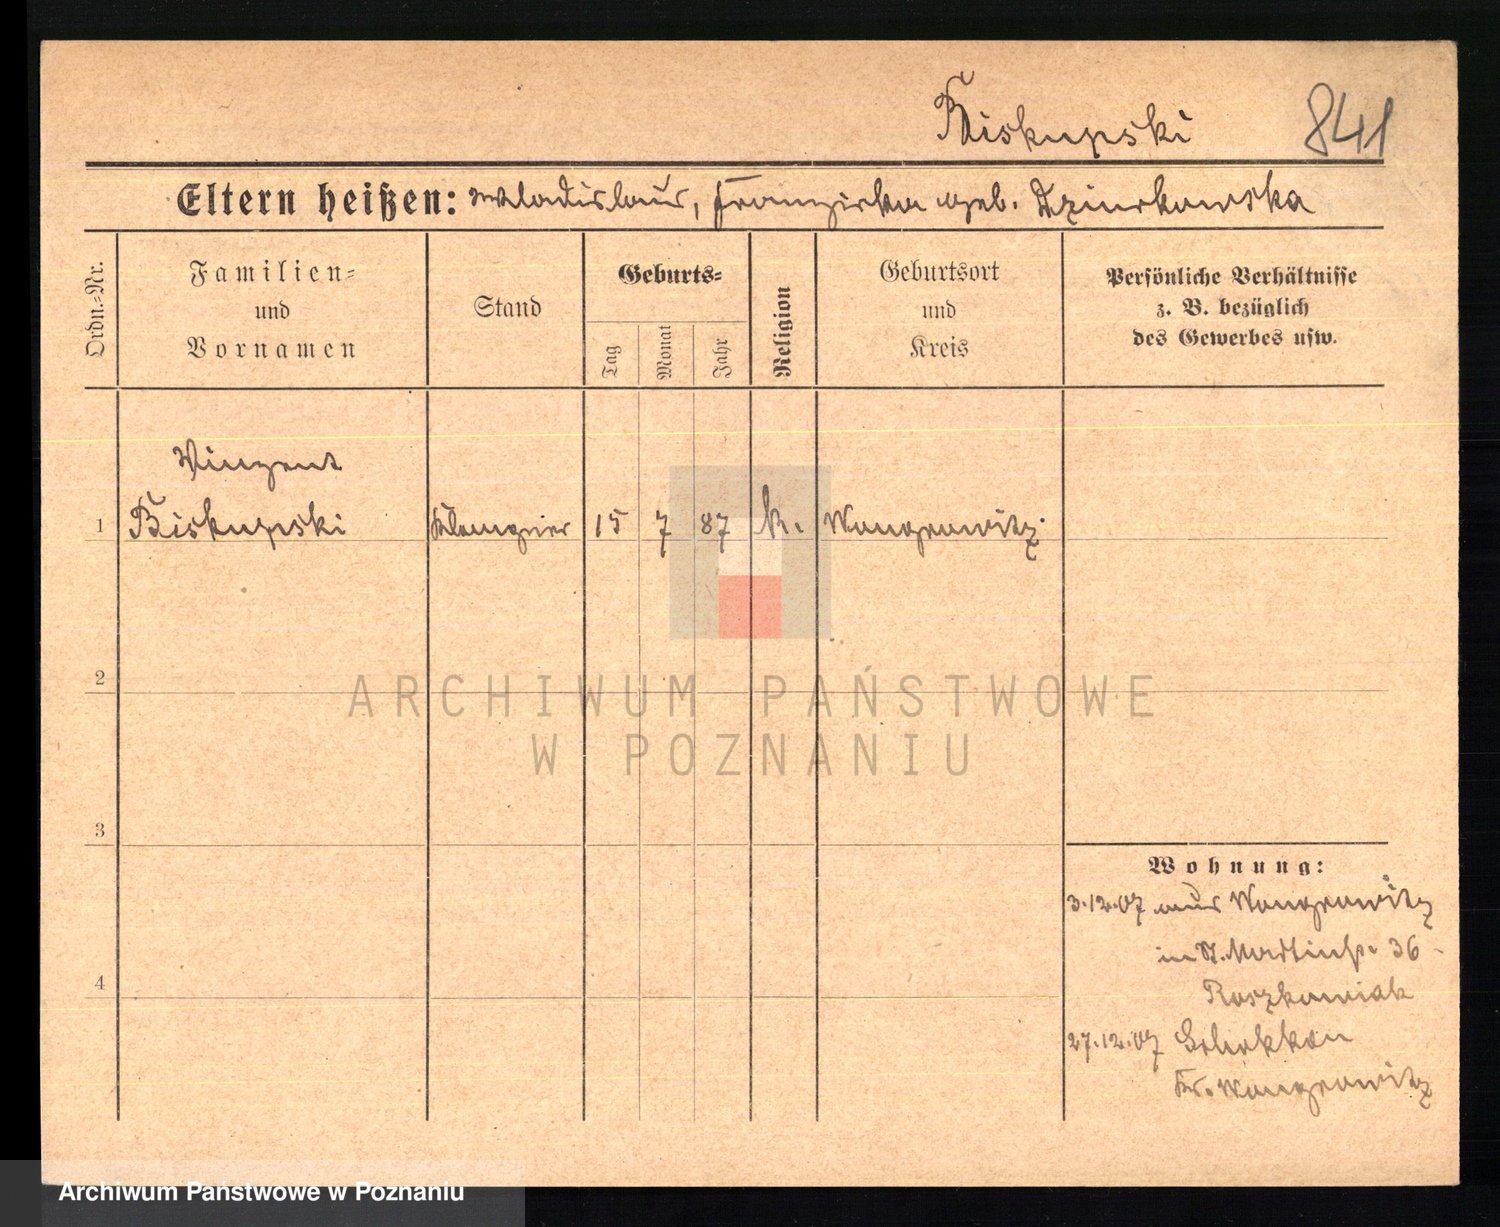 Biskupski 841
Eltern heißen: Wladislaus, Franziska geb. Dziurkowska
Ordn.=Nr.
Familien=
und
Vornamen
Stand
Geburts=
Tag
Monat
Jahr
Religion
Geburtsort
und
Kreis
Persönliche Verhältnisse
z. B. bezüglich
des Gewerbes usw.
Vinzent
1 Biskupski Klempner 15 7 87 k. Wongrowitz
2
ARCHIWUM PAŃSTWOWE
W POZNANIU
3
4
Wohnung:
3.12.07 aus Wongrowitz
in St. Martinstr. 36
Roszkowiak
27.12.07
Kr. Wongrowitz
Archiwum Państwowe w Poznaniu